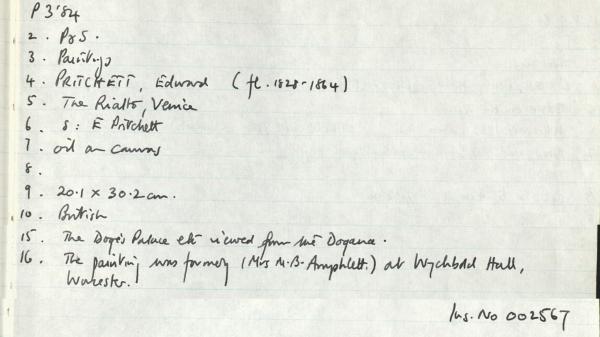 P 3'84
2. P&S.
3. Paintings
4. PRITCHETT, Edward (fl. 1828-1864)
5. The Rialto, Venice
6. s: E Pritchett
7. oil on canvas
8.
9. 20.1 x 30.2 cm.
10. British
15. The Doge's Palace etc viewed from the Dogana.
16. The painting was formerly (Mrs M.B. Amphlett.) at Wychbold Hall,
Worcester.
Ins. No 002567